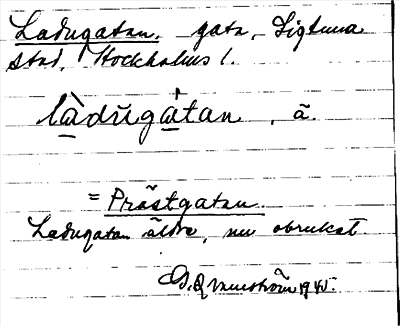 Ladugatan, gata, Sigtuna
stad, Stockholms l.
làdŭgàtan, ā.
= Prästgatan.
Ladugatan äldre, nu obrukat.
1945.